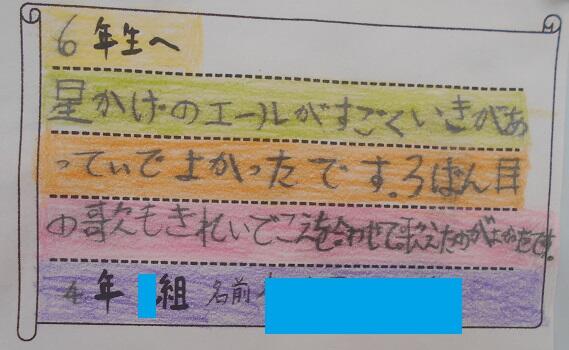 6年生へ
星かげのエールがすごくいきがあ
っていてよかったです。3ばん目
の歌もきれいでこえを合わせて歌えたのがよかったです。
4年 組 名前